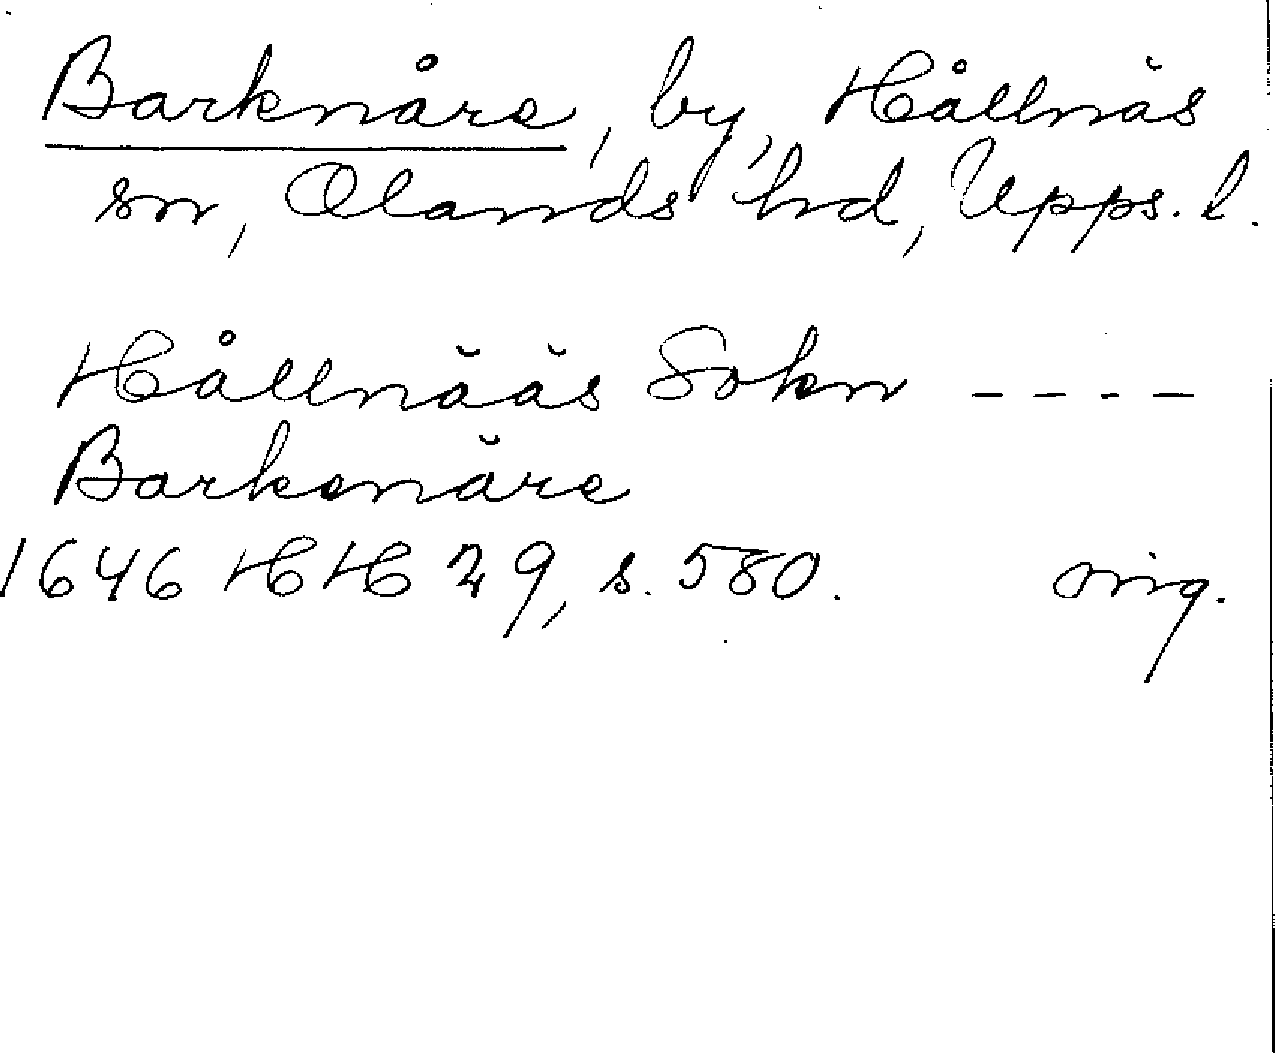 Barknåre, by, Hållnäs
sn, Olands hd, Upps. l.
Hållnääs Sokn ----
Barkenäre
1646 HH 29, s. 580.